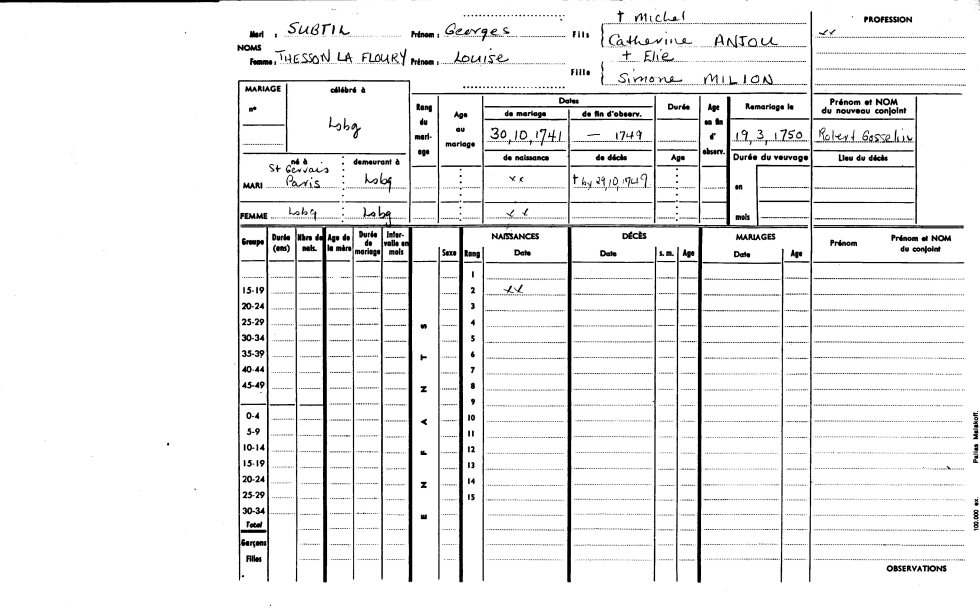 † Michel
PROFESSION
Mari : SUBTIL Prénom : Georges Fils Catherine ANJOU
xx
NOMS
† Elie
Femme : THESSON LA FLOURY Prénom : Louise Fille Simone MILION
MARIAGE célébré à
n°
Lsbg
Rang du mari- age
Age au mariage
Dates
de mariage de fin d'observ.
30,10,1741 — 1749
Durée
Age en fin d' observ.
Remariage le
19,3,1750
Prénom et NOM du nouveau conjoint
Robert Gosselin
né à demeurant à
de naissance de décès Age
Durée du veuvage
Lieu du décès
MARI St Gervais Paris Lsbg
xx † by 29,10,1749
en
FEMME Lsbg Lsbg
xx
mois
Groupe Durée (ans) Nbre de nais. Age de la mère Durée de mariage Inter- valle en mois
ENFANTS
Sexe Rang
NAISSANCES Date
DÉCÈS Date s. m. Age
MARIAGES Date Age
Prénom Prénom et NOM du conjoint
1
15-19 2 xx
20-24 3
25-29 4
30-34 5
35-39 6
40-44 7
45-49 8
9
0-4 10
5-9 11
10-14 12
15-19 13
20-24 14
25-29 15
30-34
Total
Garçons
Filles
OBSERVATIONS
100.000 ex. Pallas Malakoff.